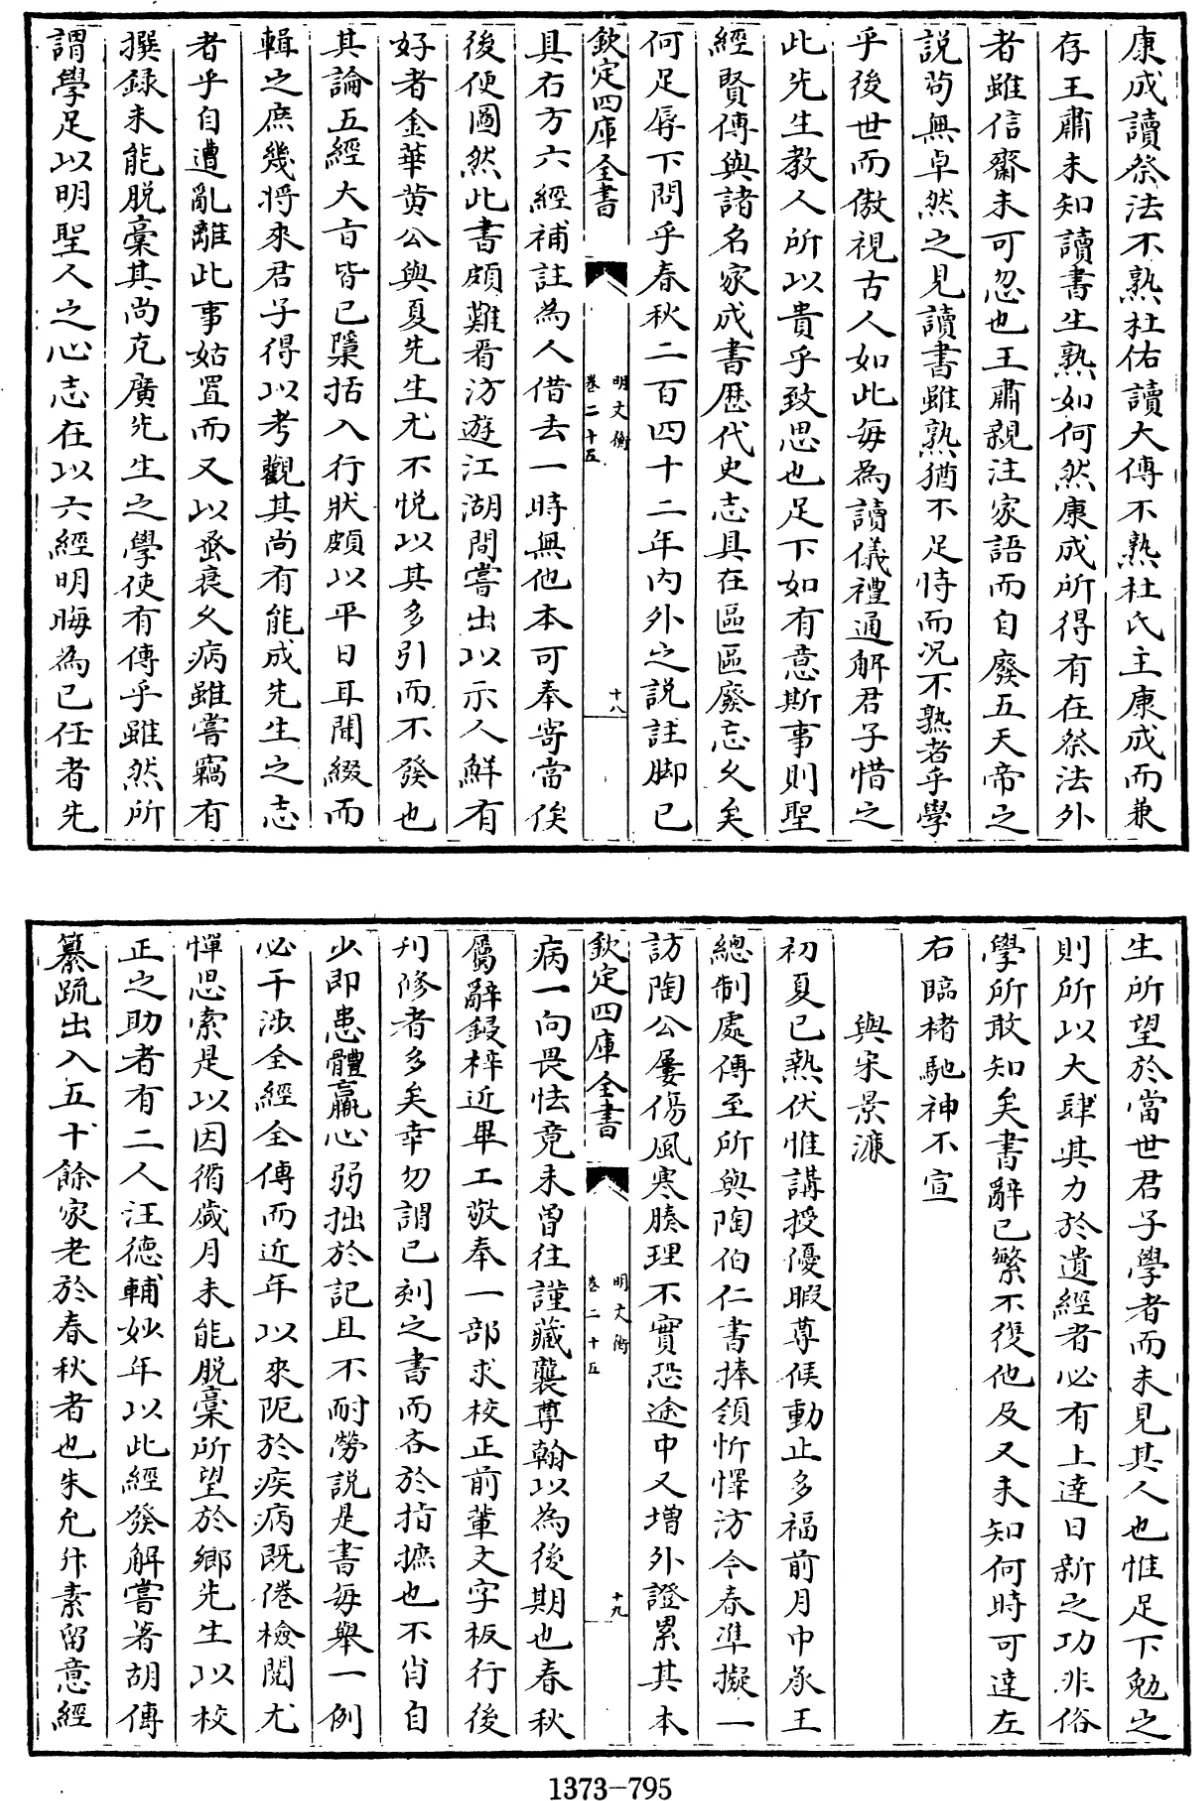 康成讀祭法不熟杜佑讀大傳不熟杜氏主康成而兼
存王肅未知讀書生熟如何然康成所得有在祭法外
者雖信齋未可忽也王肅親注家語而自廢五天帝之
說茍無卓然之見讀書雖熟猶不足恃而况不熟者乎學
乎後世而傲視古人如此每為讀儀禮通解君子惜之
此先生教人所以貴乎致思也足下如有意斯事則聖
經賢傳與諸名家成書歷代史志具在區區廢忘久矣
何足辱下問乎春秋二百四十二年內外之説註脚已
欽定四庫全書
明文衡
卷二十五
十八
具右方六經補註為人借去一時無他本可奉寄當俟
後便圖然此書頗難看汸遊江湖間嘗出以示人鮮有
好者金華黄公與夏先生尤不悦以其多引而不發也
其論五經大㫖皆已櫽括入行狀頗以平日耳聞綴而
輯之庶幾將來君子得以考觀其尚有能成先生之志
者乎自遭亂離此事姑置而又以蚤衰久病雖嘗竊有
撰録未能脱稾其尚克廣先生之學使有傳乎雖然所
謂學足以明聖人之心志在以六經明晦為己任者先
生所望於當世君子學者而未見其人也惟足下勉之
則所以大肆其力於遺經者必有上達日新之功非俗
學所敢知矣書辭已繁不復他及又未知何時可達左
右臨楮馳神不宣
與宋景濂
初夏已熱伏惟講授優暇尊候動止多福前月中承王
總制處傳至所與陶伯仁書捧領忻懌汸今春凖擬一
訪陶公屢傷風寒腠理不實恐途中又增外證累其本
欽定四庫全書
明文衡
卷二十五
十九
病一向畏怯竟未曾往謹藏襲尊翰以為後期也春秋
屬辭鋟梓近畢工敬奉一部求校正前輩文字板行後
刋修者多矣幸勿謂已刻之書而吝於指摭也不肖自
少即患體羸心弱拙於記且不耐勞説是書每舉一例
必干涉全經全傳而近年以來阨於疾病既倦檢閲尤
憚思索是以因循歲月未能脱稾所望於鄉先生以校
正之助者有二人汪德輔妙年以此經發解嘗著胡傳
纂疏出入五十餘家老於春秋者也朱允升素留意經
1373-795